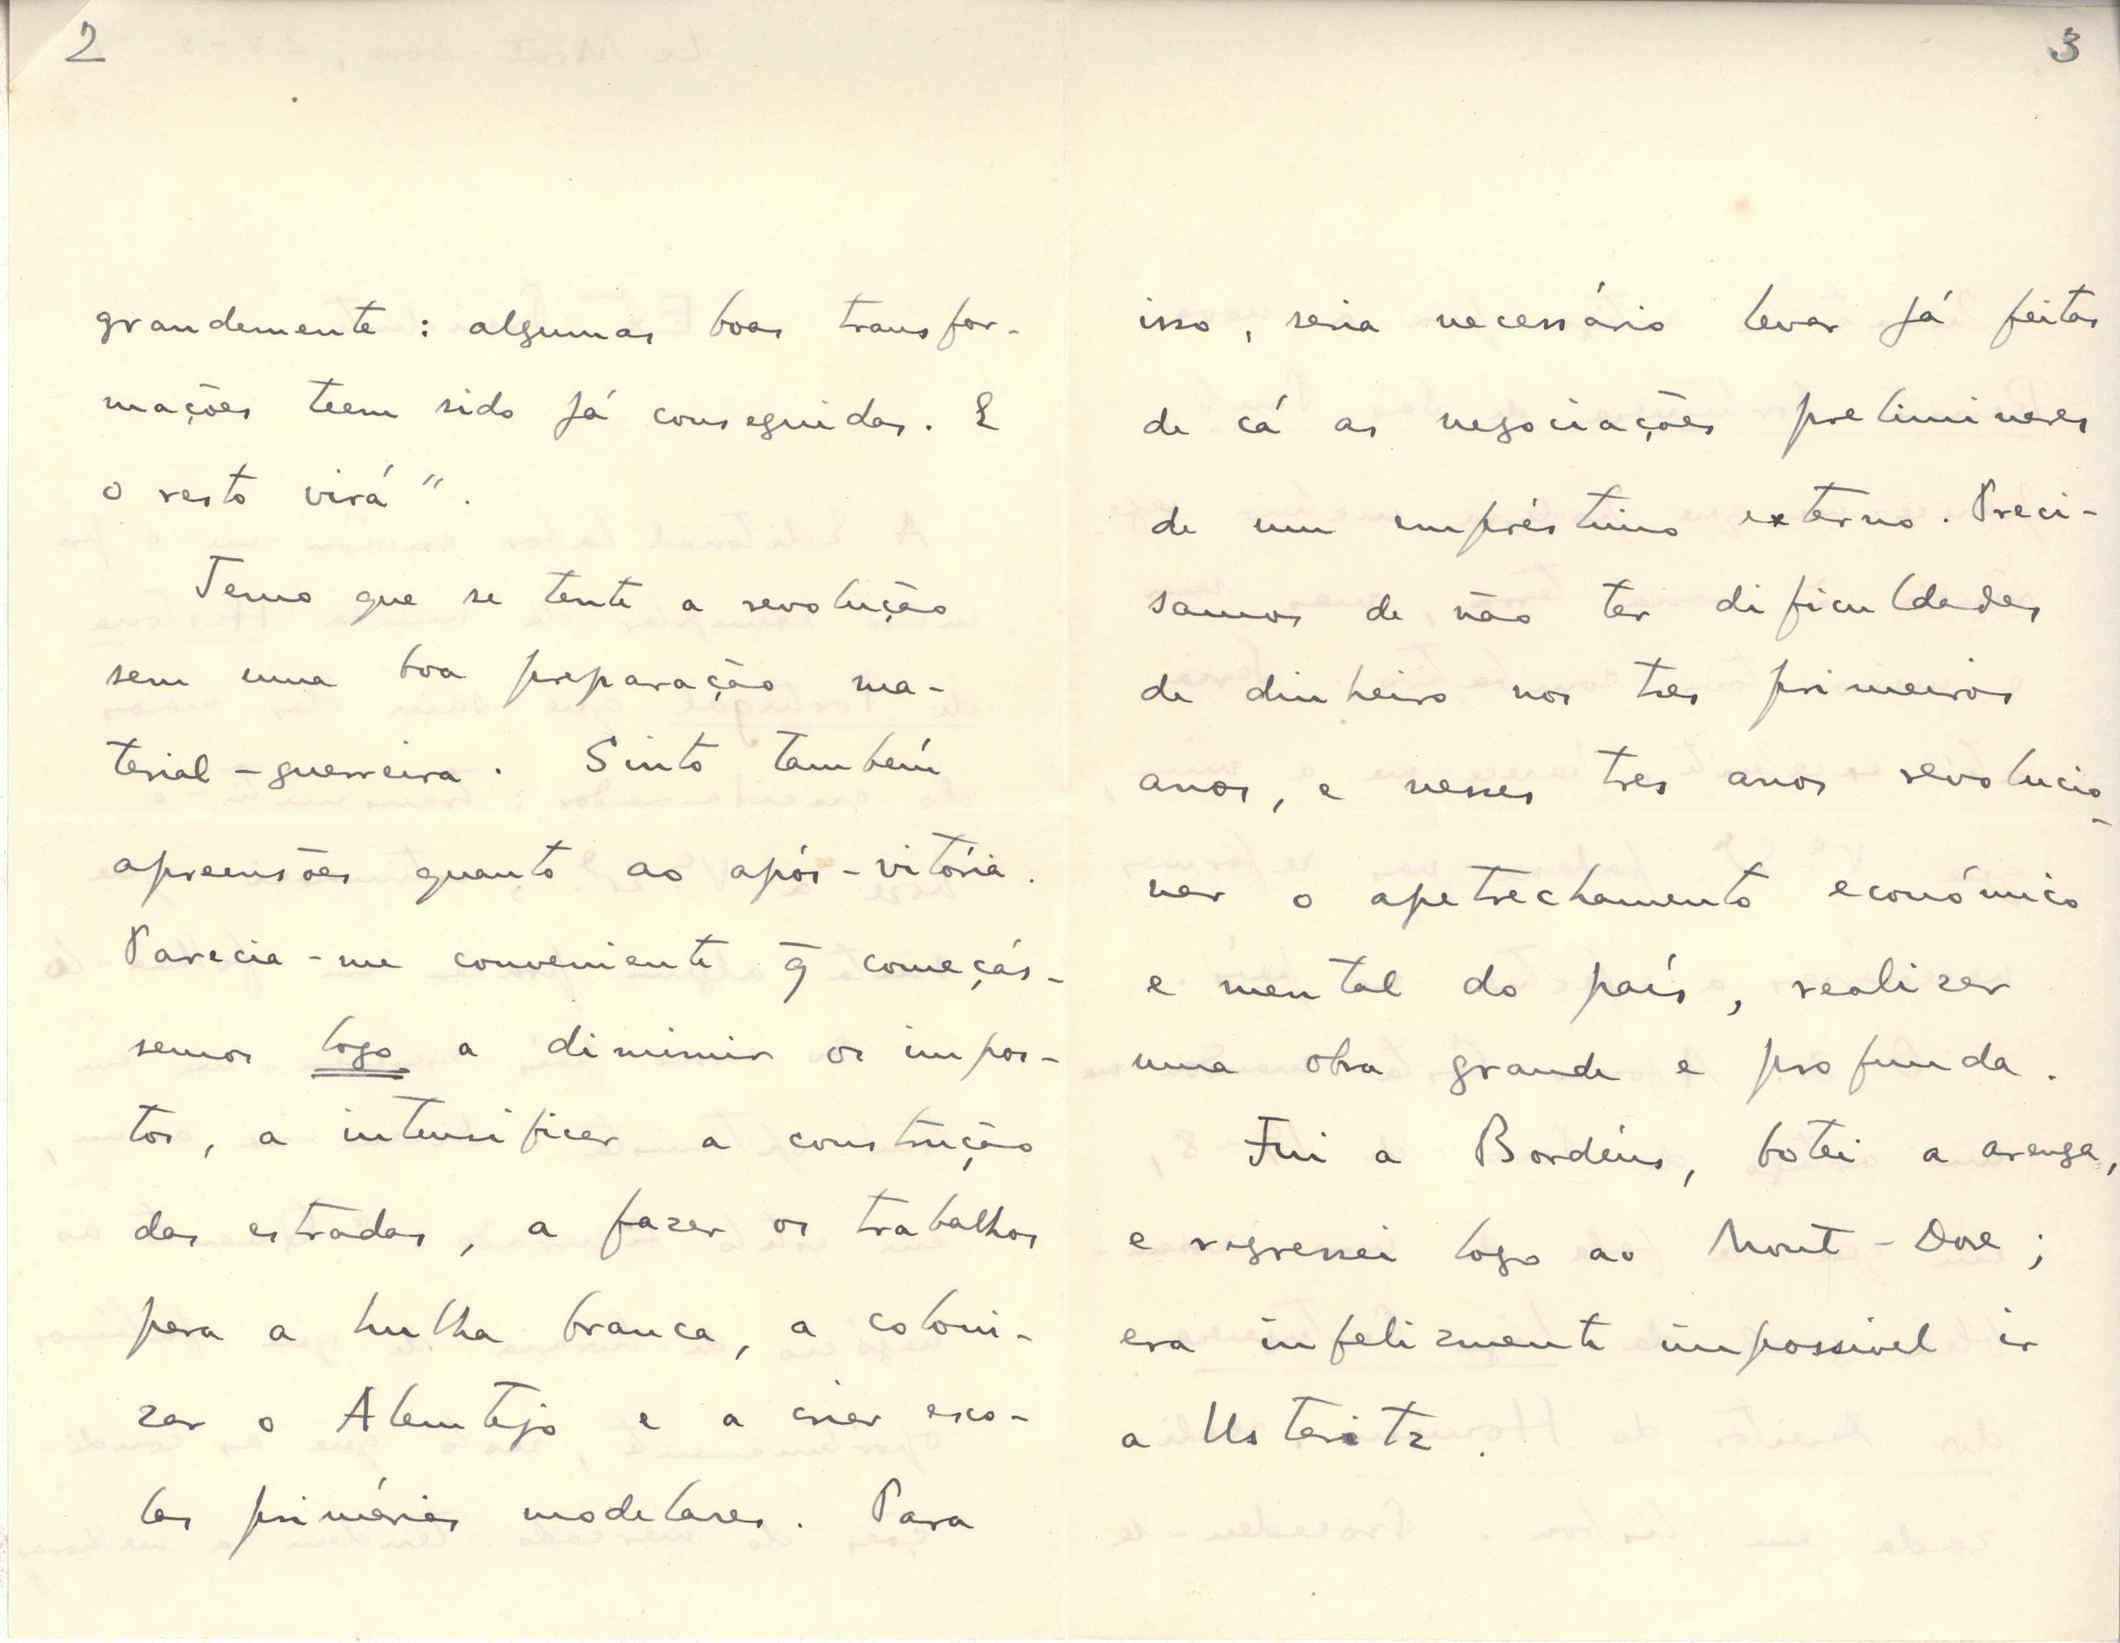 2
grandemente : algumas boas transfor-
mações teem sido já conseguidas. E
o resto virá".
Temo que se tente a revolução
sem uma boa preparação ma-
terial-guerreira. Sinto também
apreensões quanto ao após-vitória.
Parecia-me conveniente q̄ começás-
semos logo a diminuir os impos-
tos, a intensificar a construção
das estradas, a fazer os trabalhos
pera a hulha branca, a coloni-
zar o Alemtejo e a criar esco-
las primárias modelares. Para
3
isso, seria necessário levar já feitas
de cá as negociações preliminares
de um empréstimo externo. Preci-
samos de não ter dificuldades
de dinheiro nos tres primeiros
anos, e nesses tres anos revolucio-
nar o apetrechamento económico
e mental do país, realizar
uma obra grande e profunda.
Fui a Bordéus, botei a arenga,
e regressei logo ao Mont-Dore ;
era infelizmente impossivel ir
a Ustaritz.